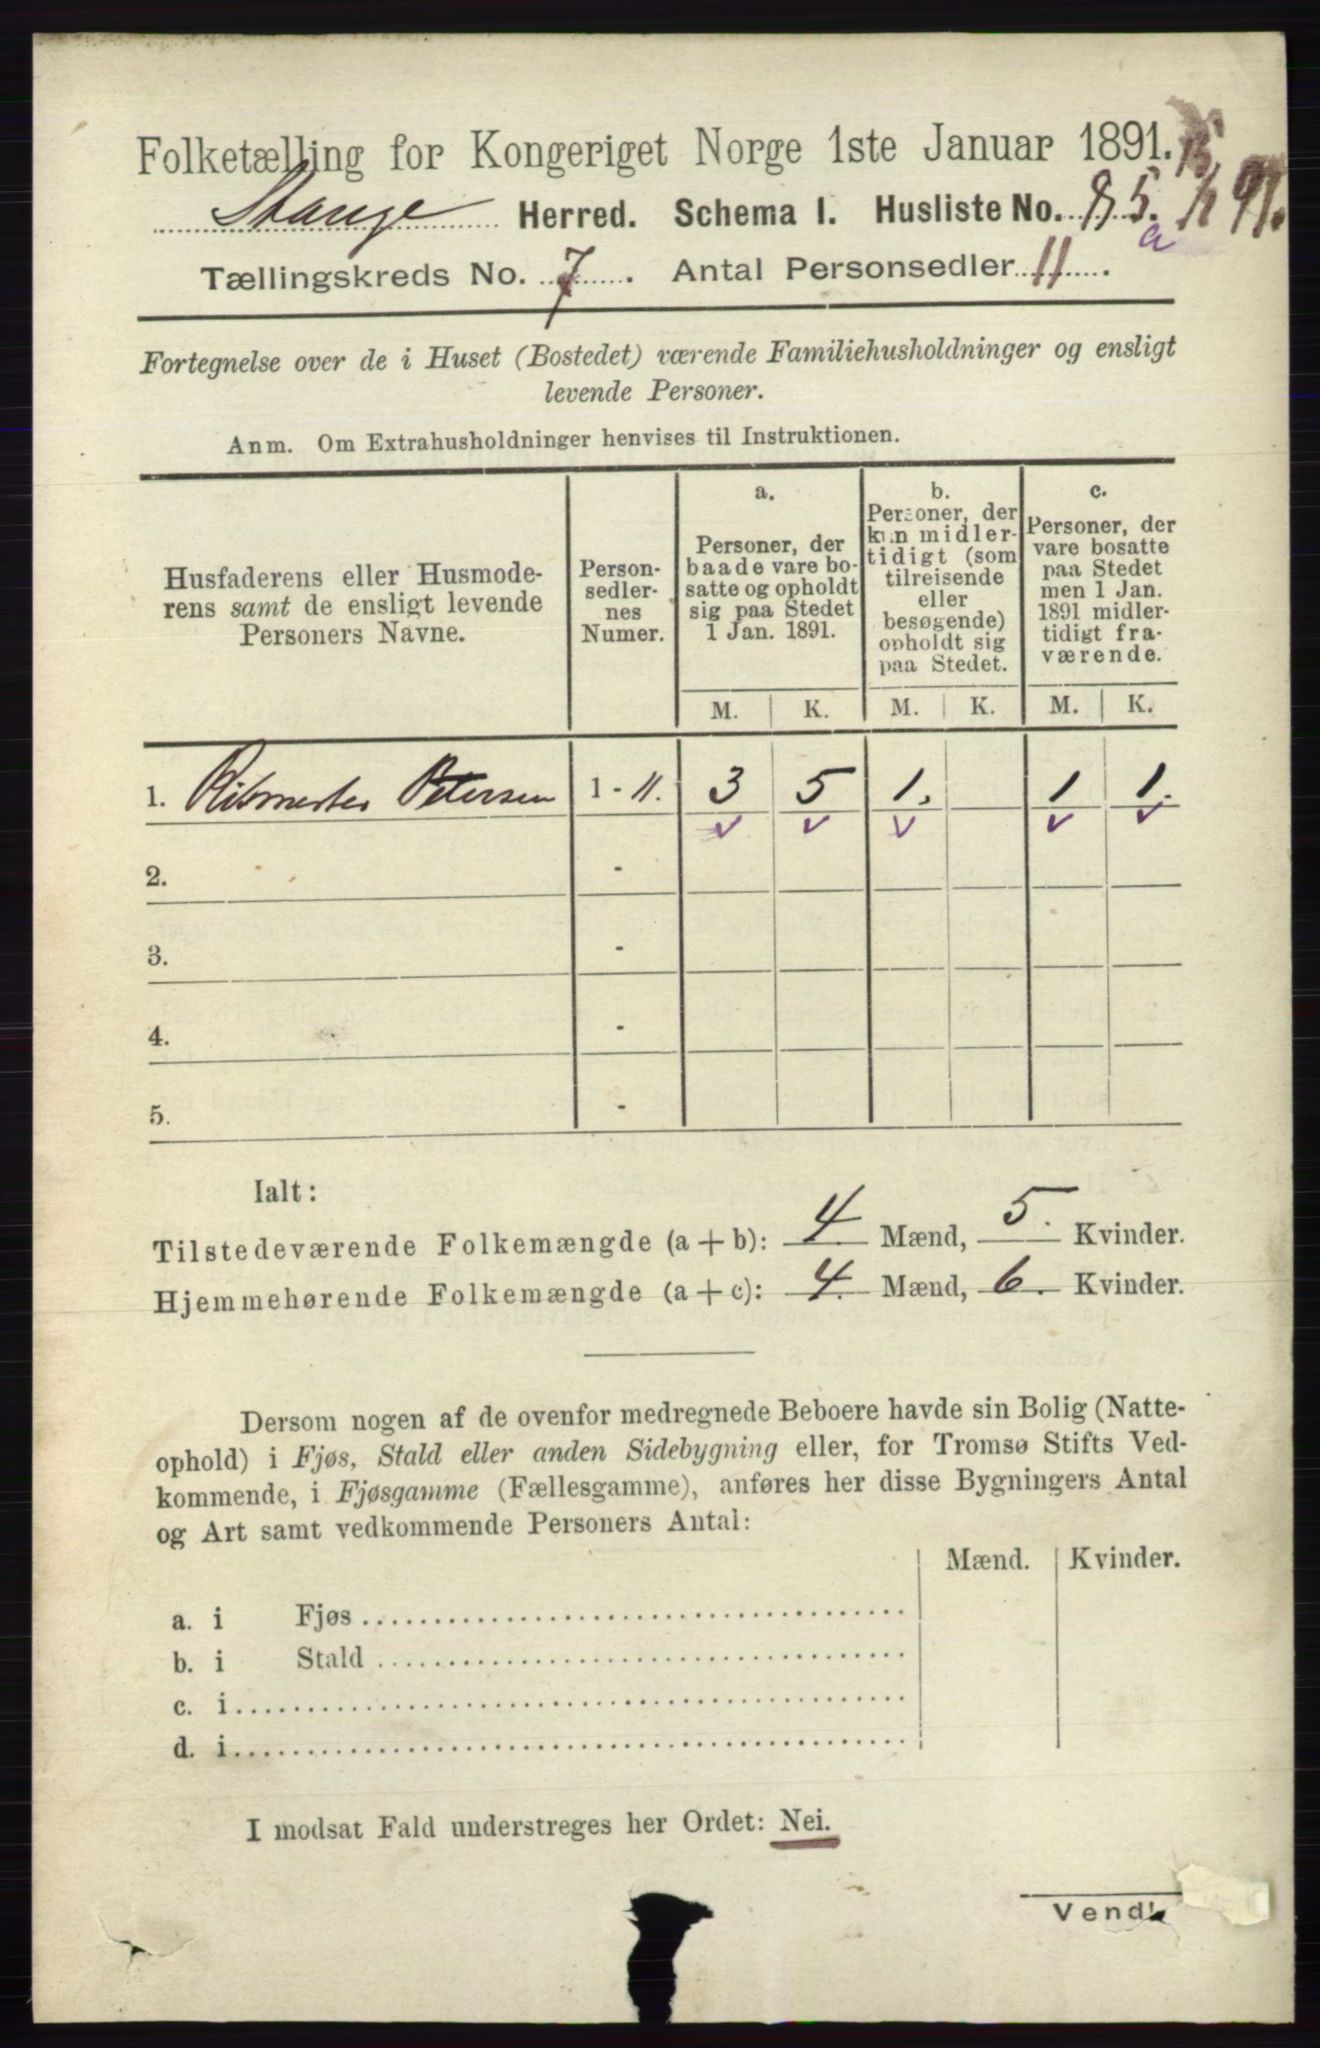 Folketælling for Kongeriget Norge 1ste Januar 1891.
Stange Herred. Schema I. Husliste No. 5. 91.
a
Tællingskreds No. 7. Antal Personsedler 11.
Fortegnelse over de i Huset (Bostedet) værende Familiehusholdninger og ensligt
levende Personer.
Anm. Om Extrahusholdninger henvises til Instruktionen.
Husfaderens eller Husmode-
rens samt de ensligt levende
Personers Navne.
Person-
sedler-
nes
Numer.
a.
Personer, der
baade vare bo-
satte og opholdt
sig paa Stedet
1 Jan. 1891.
b.
Personer, der
kun midler-
tidigt (som
tilreisende
eller
besøgende)
opholdt sig
paa Stedet.
c.
Personer, der
vare bosatte
paa Stedet
men 1 Jan.
1891 midler-
tidigt fra-
værende.
M. K. M. K. M. K.
1. Ritmester Petersen 1 - 11. 3 5 1. 1 1.
v v v v v
2. -
3. -
4. -
5. -
Ialt:
Tilstedeværende Folkemængde (a+b): 4 Mænd, 5. Kvinder.
Hjemmehørende Folkemængde (a+c): 4. Mænd, 6. Kvinder.
Dersom nogen af de ovenfor medregnede Beboere havde sin Bolig (Natte-
ophold) i Fjøs, Stald eller anden Sidebygning eller, for Tromsø Stifts Ved-
kommende, i Fjøsgamme (Fællesgamme), anføres her disse Bygningers Antal
og Art samt vedkommende Personers Antal:
Mænd. Kvinder.
a. i Fjøs
b. i Stald
c. i
d. i
I modsat Fald understreges her Ordet: Nei.
Vend!